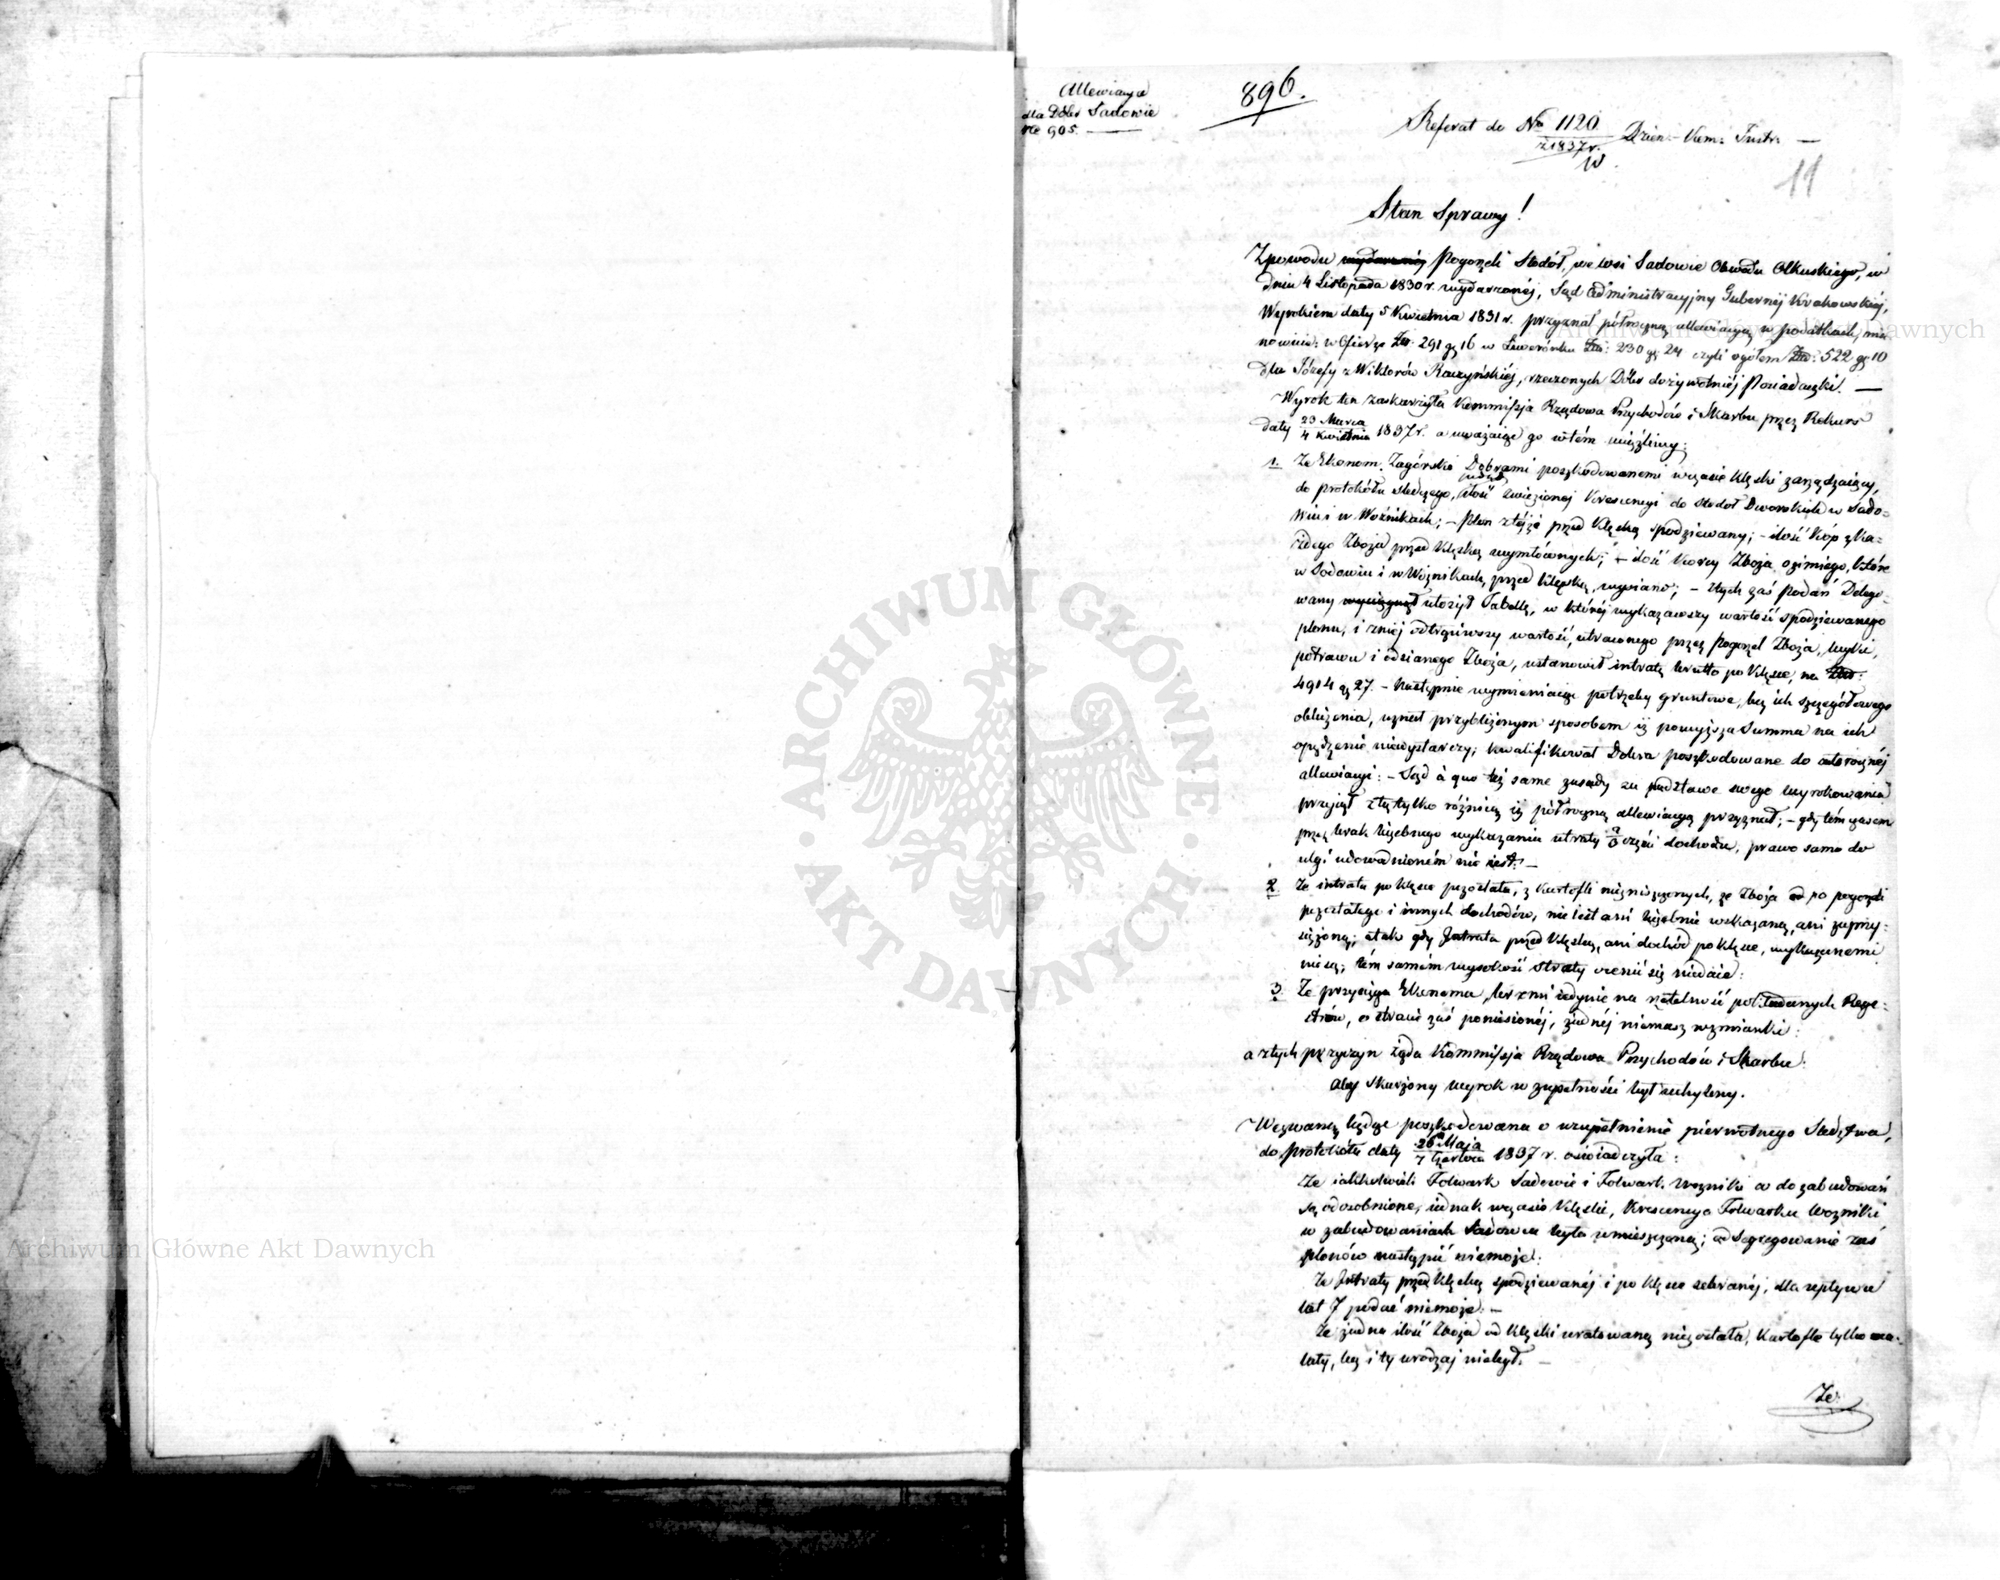 Allewiacya
dla Dóbr Sadowie
Nro 905.
896.
Referat do No 1120 Dzien. Kom: Instr: —
z 1837 r.
11
Stan Sprawy!
Z powodu Pogorzeli Stodół, we wsi Sadowie Obwodu Olkuskiego, w
dniu 4 Listopada 1830 r. wydarzonéj, Sąd Administracyjny Gubernij Krakowskiéj,
Wyrokiem daty 5 Kwietnia 1831 r. przyznał półroczną allewiacyą w podatkach, mia-
nowicie: w Ofierze Złp: 291 gr 16 w Liwerunku Złp: 230 gr 24 czyli ogółem Złp: 522 gr 10
dla Józefy z Wiktorów Raczyńskiéj, rzeczonych Dóbr dożywotniéj Posiadaczki. —
Wyrok ten zaskarżyła Kommissja Rządowa Przychodów i Skarbu przez Rekurs
daty 23 Marca / 4 Kwietnia 1837 r. a uważaiąc go w tém uciążliwy:
1. Że Ekonom. Zagórski Dobrami poszkodowanemi w czasie klęski zarządzaiący,
do protokółu śledczego, podał ilość zwiezionej Krescencyi do Stodół Dworskich w Sado-
wiu i w Woźnikach; – Plon z téjże przed klęską spodziewany; – ilość kóp z ka-
żdego Zboża przed klęską wymłóconych; – ilość korcy Zboża ozimiego, które
w Sadowiu i w Woźnikach, przed klęską, wysiano; – z tych zaś podań Delego-
wany ułożył Tabellę, w któréj wykazawszy wartość spodziewanego
plonu, i z niéj odtrąciwszy wartość, utraconego przez Pogorzel Zboża, wyki,
potrawu i odsianego Zboża, ustanowił intratę brutto po klęsce, na Złp:
4914 gr 27. – Następnie wymieniaiąc potrzeby gruntowe, bez ich szczegółowego
obliczenia, uznał przybliżonym sposobem iż powyższa Summa na ich
opędzenie niewystarczy; kwalifikował Dobra poszkodowane do całorocznéj
allewiacyi: – Sąd à quo też same zasady za podstawę swego wyrokowania
przyjął z tą tylko różnicą iż półroczną allewiacyą przyznał; – gdy tém czasem
przez brak liczebnego wykazania utraty części dochodu, prawo samo do
ulgi udowodnioném nie jest: —
2. Że intrata po klęsce pozostała, z kartofli niezniszczonych, ze Zboża po pogorzeli
pozostałego i innych dochodów, nie iest ani liczebnie wskazaną, ani zaprzy-
siężoną; a tak gdy Intrata przed klęską, ani dochód po klęsce, wykazanemi
nie są; tém samém wysokość straty ocenić się niedaie:
3. Że przysięga Ekonoma, brzmi iedynie na rzetelność po kładanych Reje-
strów, o stracie zaś poniesionéj, żadnéj niemasz wzmianki:
a z tych przyczyn żąda Kommissja Rządowa Przychodów i Skarbu:
Aby skarżony wyrok w zupełności był uchylony.
Wezwaną będąc poszkodowana o uzupełnienie pierwotnego Śledztwa,
do protokółu daty 26 Maja / 7 Czerwca 1837 r. oświadczyła:
Że iakkolwiek Folwark Sadowie i Folwark Woźniki co do zabudowań
są odosobnione, iednak w czasie klęski, Krescencya Folwarku Woźniki
w zabudowaniach Sadowia była umieszczoną; a Segregowanie zaś
plonów nastąpić niemoże:
Że Intraty przed klęską spodziewanéj i po klęsce zebranéj, dla upływu
lat 7 podać niemoże: —
Że żadna ilość Zboża od klęski uratowaną niezostała, Kartofle tylko oca-
lały, lecz i ty urodzaj niebył. —
Że
Archiwum Główne Akt Dawnych
Archiwum Główne Akt Dawnych
· ARCHIWUM GŁÓWNE · AKT DAWNYCH